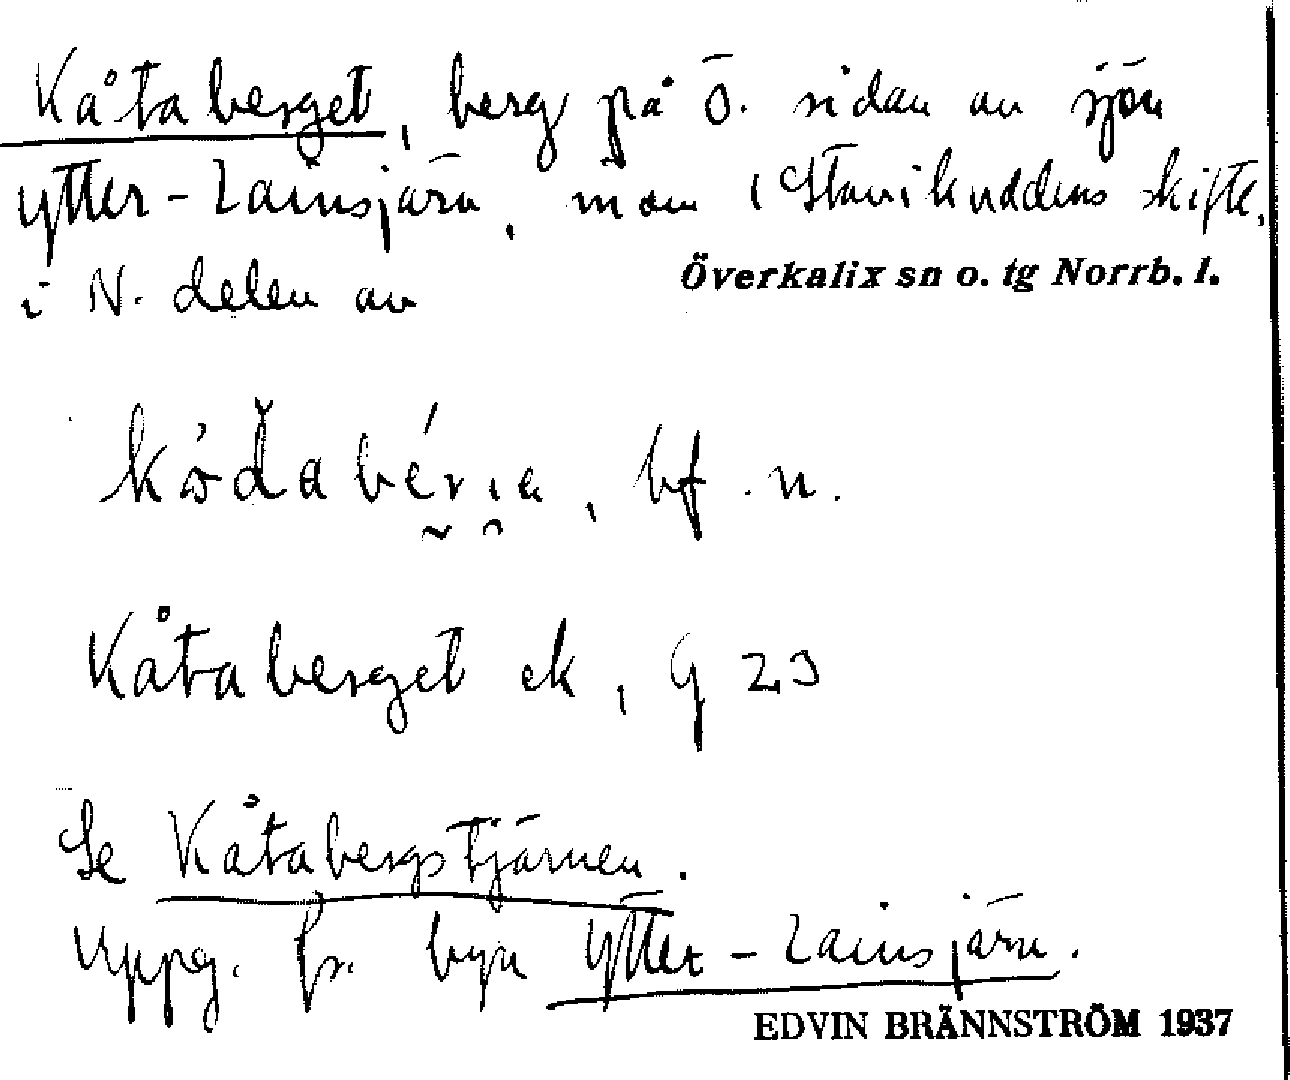 Kåtaberget, berg på Ö. sidan av sjön
Ytter-Lainsjärv, inom Stavikuddens skifte,
i N. delen av Överkalix sn o. tg Norrb. l.
bf. n.
Kåtaberget ek, G 23
Se Kåtabergstjärnen.
Uppg. fr. byn Ytter-Lainsjärv.
EDVIN BRÄNNSTRÖM 1937